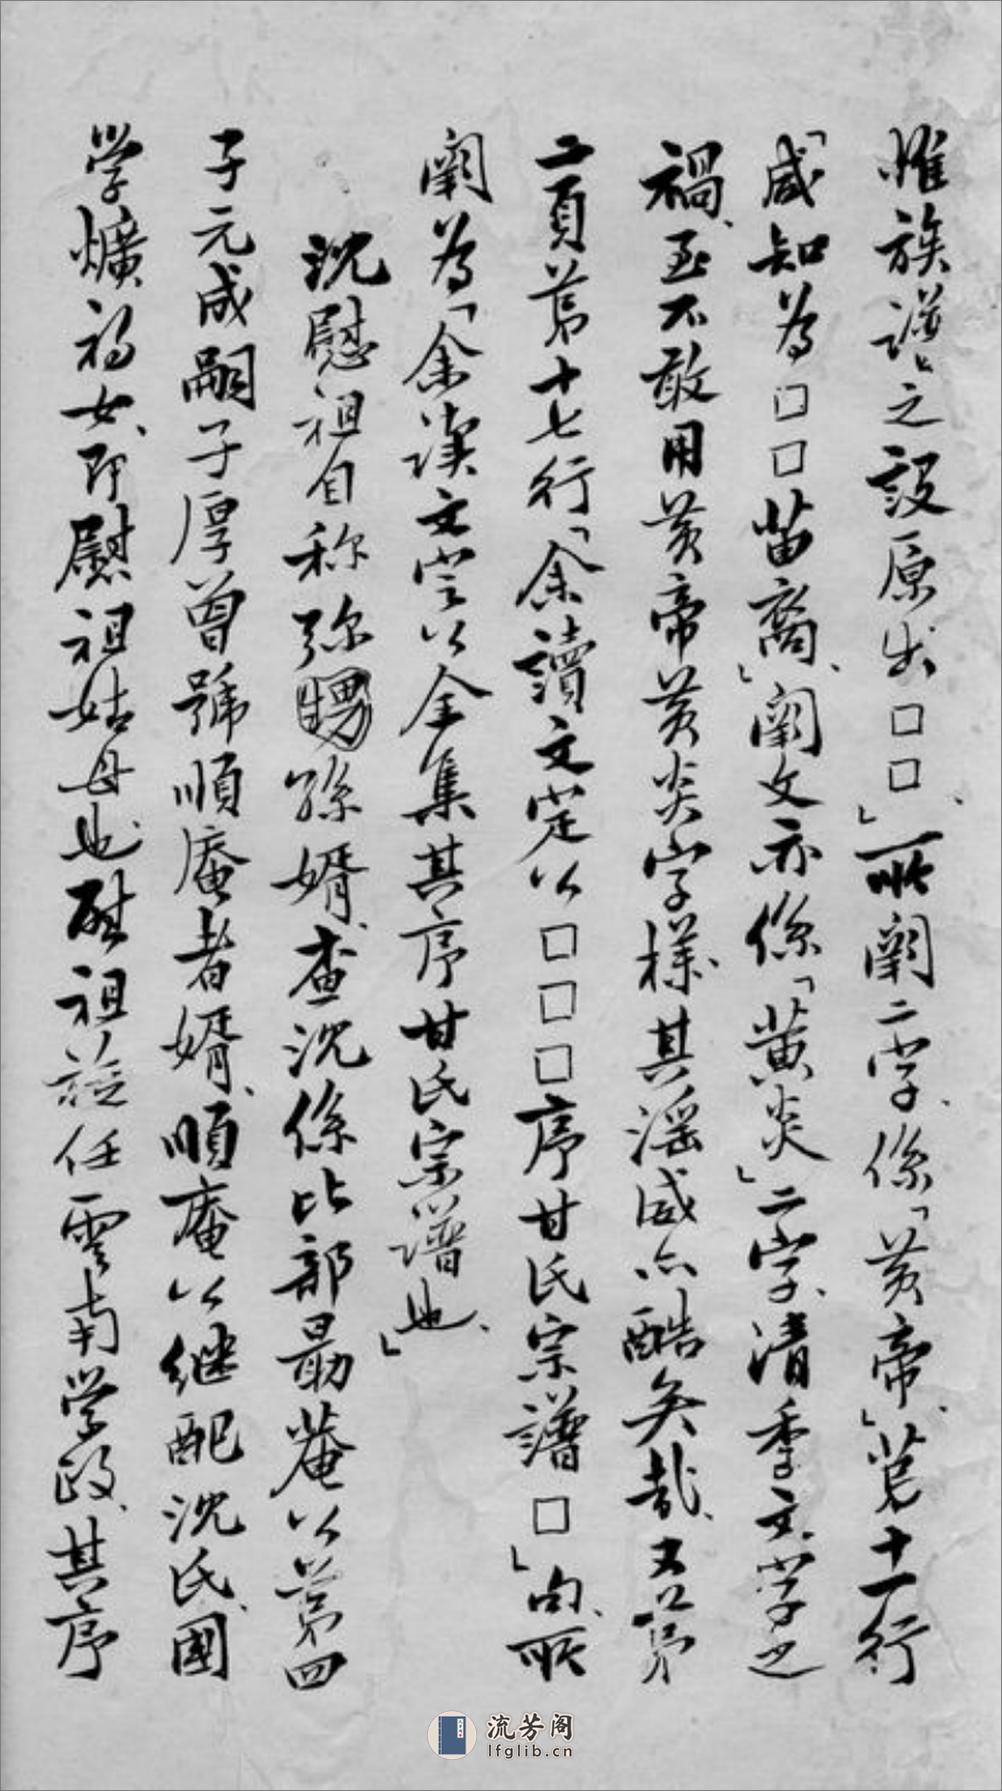 惟族譜之設原出□□」所闕二字、係「黃帝」、第十一行
「咸知為□□苗裔」、闕文亦係「黃炎」二字、清季文字之
禍、至不敢用黃帝黃炎字樣、其淫威亦酷矣哉、又第
二頁第十七行「余讀文定公□□□序甘氏宗譜□」句、所
闕為「余讀文定公全集其序甘氏宗譜也」、
沈慰祖自称弥甥孫婿、查沈係比部勗菴公第四
子元成嗣子厚曾號順庵者婿、順庵公继配沈氏、國
学爌祁女、即慰祖姑母也、慰祖 任雲南学政、其序
流芳阁
lfglib.cn